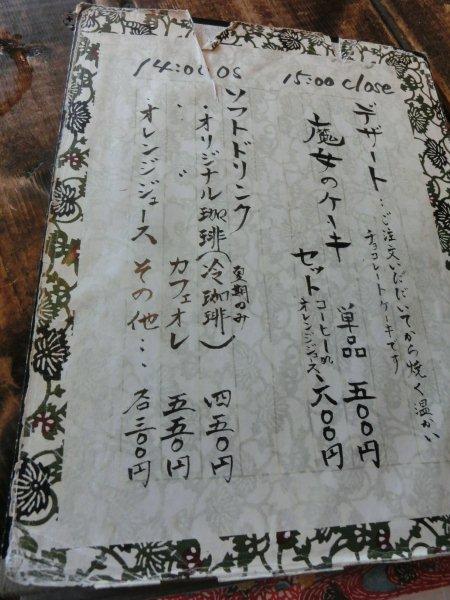 14:00 OS 15:00 close
デザート‥ご注文いただいてから焼く温かい
チョコレートケーキです
魔女のケーキ 単品 五〇〇円
セット コーヒーor
オレンジジュース 六〇〇円
ソフトドリンク
・オリジナル珈琲(冷珈琲) 四五〇円
夏期のみ
・〃 カフェオレ 五五〇円
・オレンジジュース その他… 各三〇〇円